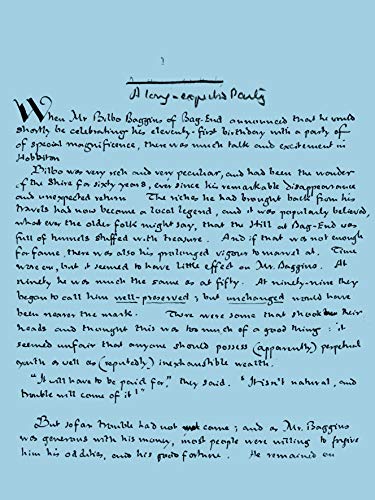 A long-expected Party
When Mr Bilbo Baggins of Bag-End announced that he would
shortly be celebrating his eleventy-first birthday with a party of
of special magnificence, there was much talk and excitement in
Hobbiton
Bilbo was very rich and very peculiar, and had been the wonder
of the Shire for sixty years, ever since his remarkable disappearance
and unexpected return. The riches he had brought back from his
travels had now become a local legend, and it was popularly believed,
what ever the older folk might say, that the Hill at Bag-End was
full of tunnels stuffed with treasure. And if that was not enough
for fame, there was also his prolonged vigour to marvel at. Time
wore on, but it seemed to have little effect on Mr. Baggins. At
ninety he was much the same as at fifty. At ninety-nine they
began to call him well-preserved; but unchanged would have
been nearer the mark. There were some that shook their
heads and thought this was too much of a good thing: it
seemed unfair that anyone should possess (apparently) perpetual
youth as well as (reputedly) inexhaustible wealth.
"It will have to be paid for," they said. "It isn't natural, and
trouble will come of it!"
But so far trouble had not come; and as Mr. Baggins
was generous with his money, most people were willing to forgive
him his oddities, and his good fortune. He remained on